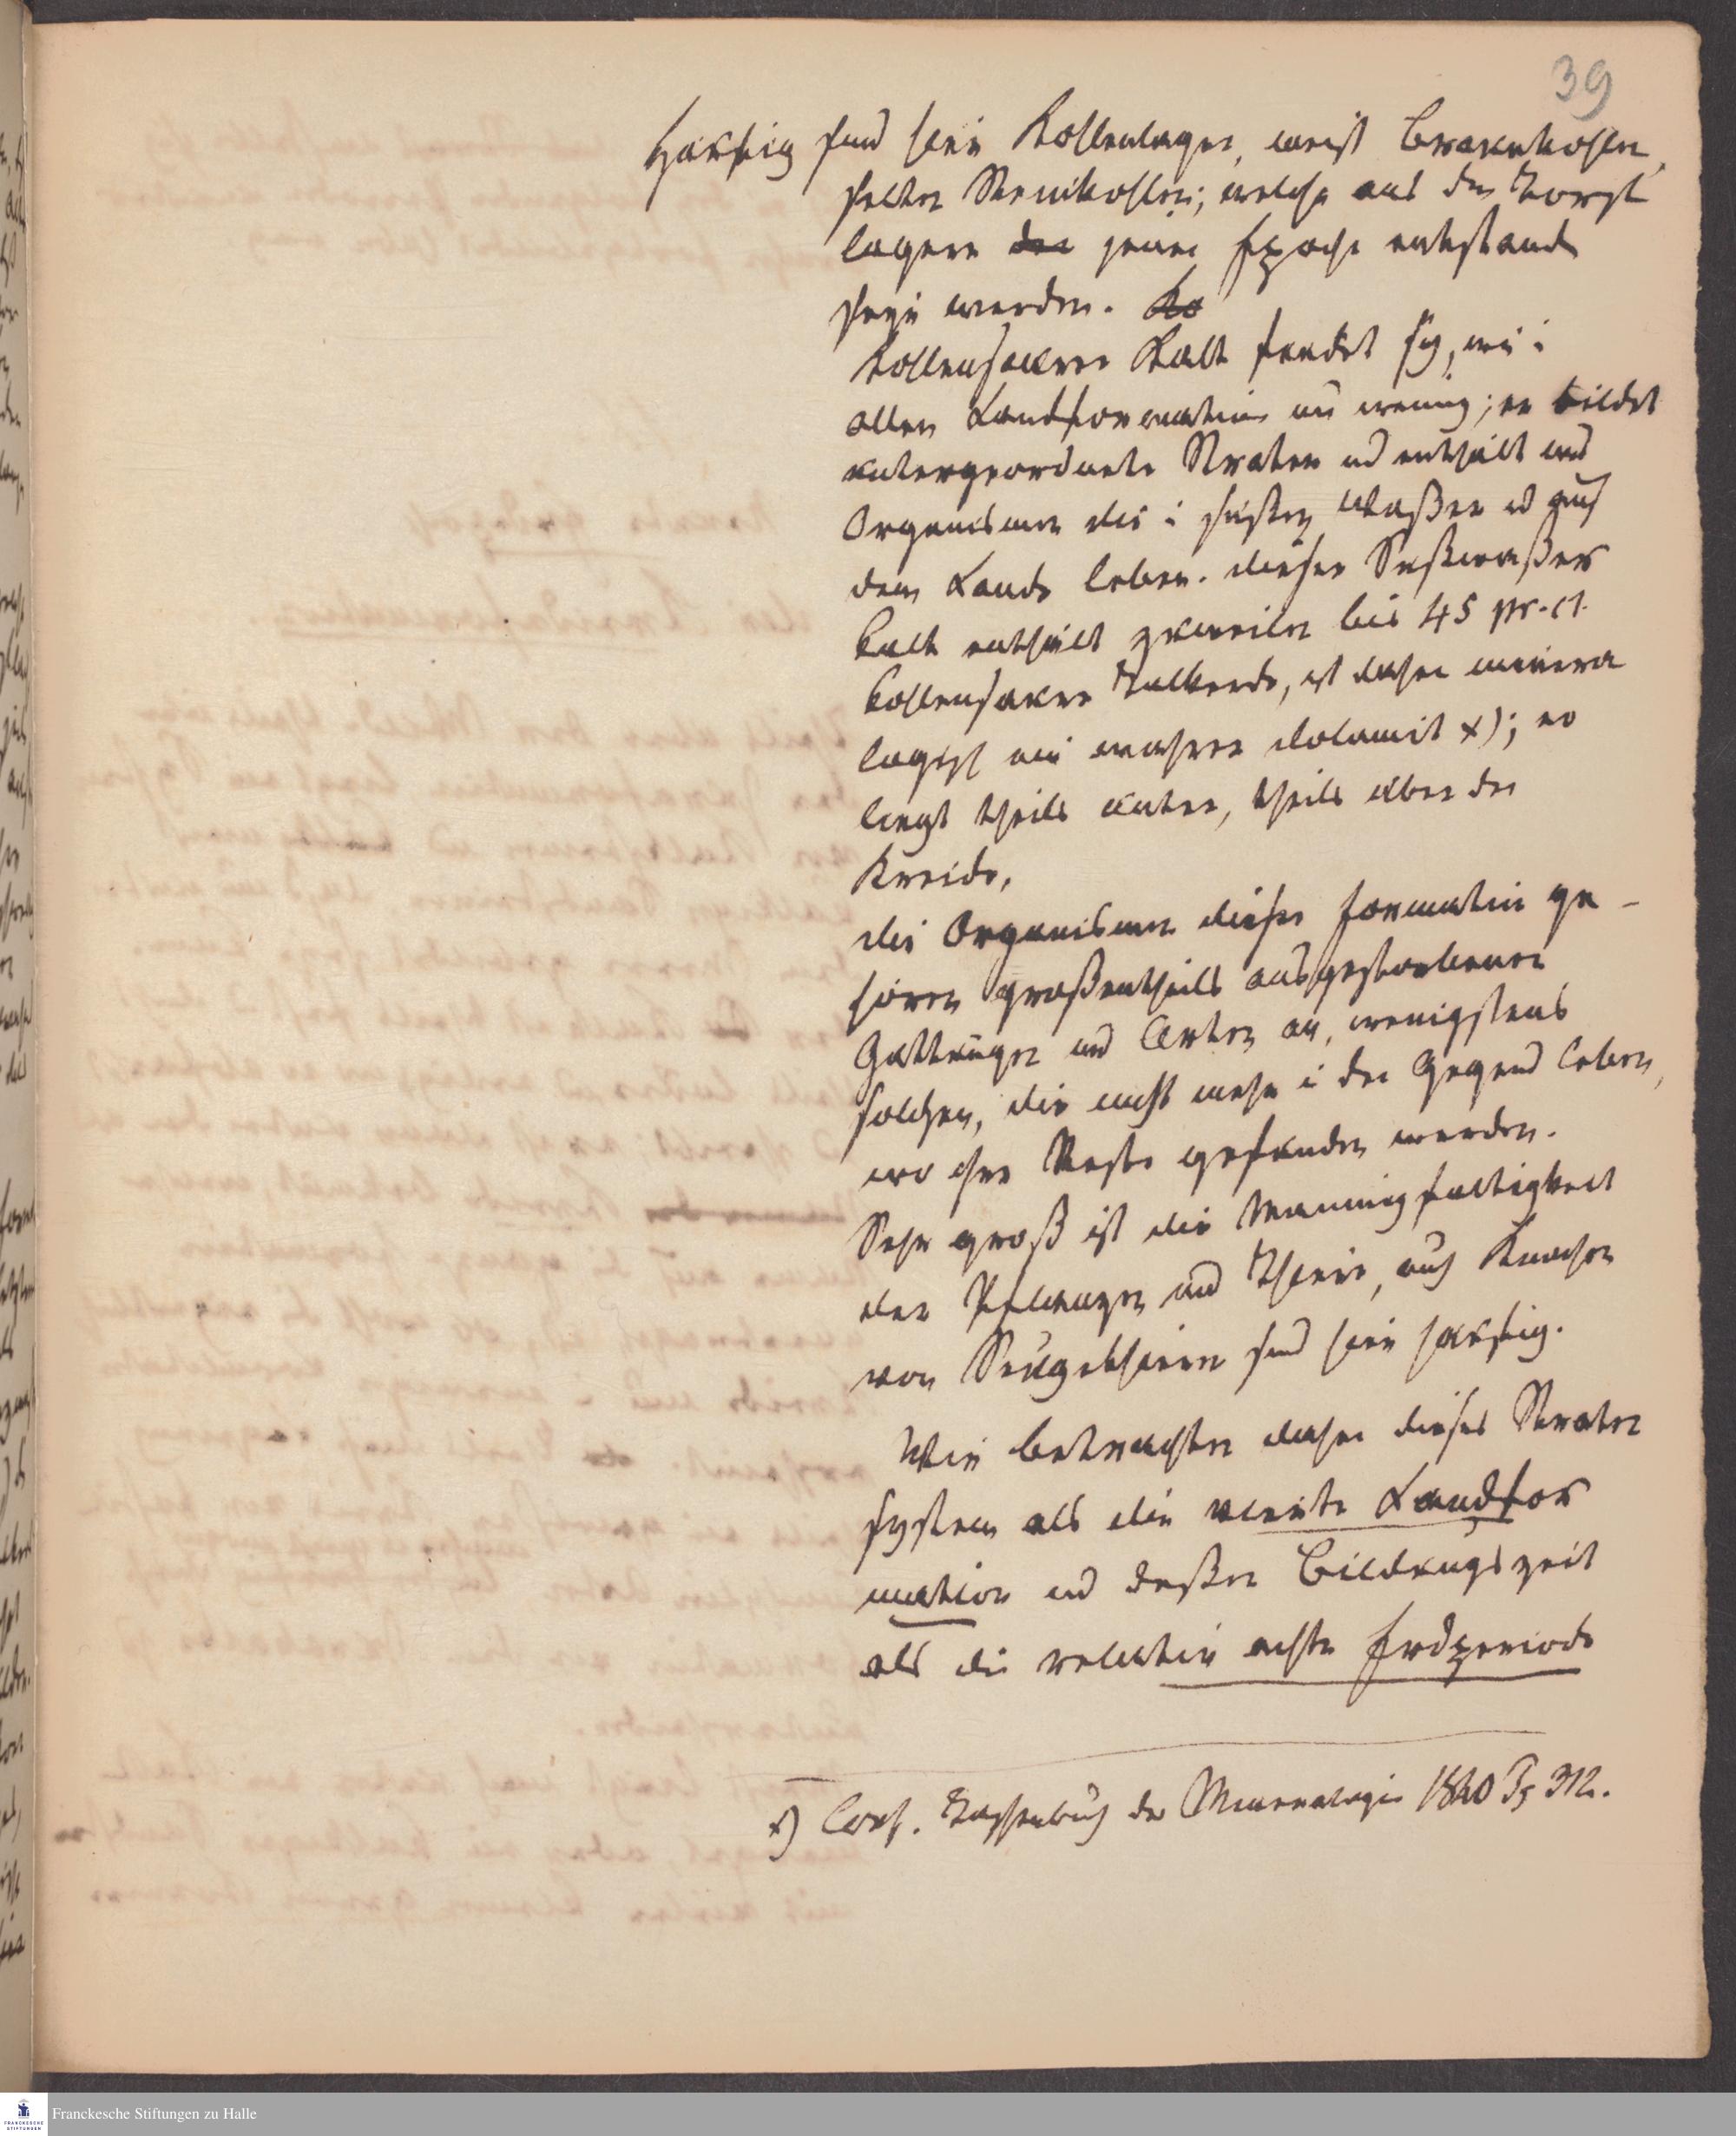 39
Haeufig sind hier Kohlenlager, meist Braunkohlen,
selten Steinkohlen; welche aus den Torf
lagern der jener Epoche entstand
seyn werden. Ko
Kohlensaurer Kalk findet sich, wie i
allen Landformation nur wenig; er bildet
untergeordnete Straten und enthält nur
Organismen die i süßen Waßer und auf
dem Lande leben. dieser Süßwaßer
kalk enthält zuweilen bis 45 pr. Ct.
kohlensaure Talkerde, ist daher minera
logisch ein wahrer Dolomit x); er
liegt theils unter, theils über der
Kreide,
die Organismen dieser Formation ge-
hören großentheils ausgestorbenen
Gattungen und Arten an, wenigstens
solchen, die nicht mehr i der Gegend leben,
wo ihre Reste gefunden werden.
Sehr groß ist die Mannigfaltigkeit
der Pflanzen und Thiere, auch Knochen
von Seugethieren sind hier haeufig.
Wir betrachten daher dieses Straten
system als die vierte Landfor
mation und deßen Bildungszeit
als die relativ achte Erdperiode
x) Conf. Taschenbuch der Mineralogie 1820 312.
Franckesche Stiftungen zu Halle
FRANCKESCHE
STIFTUNGEN